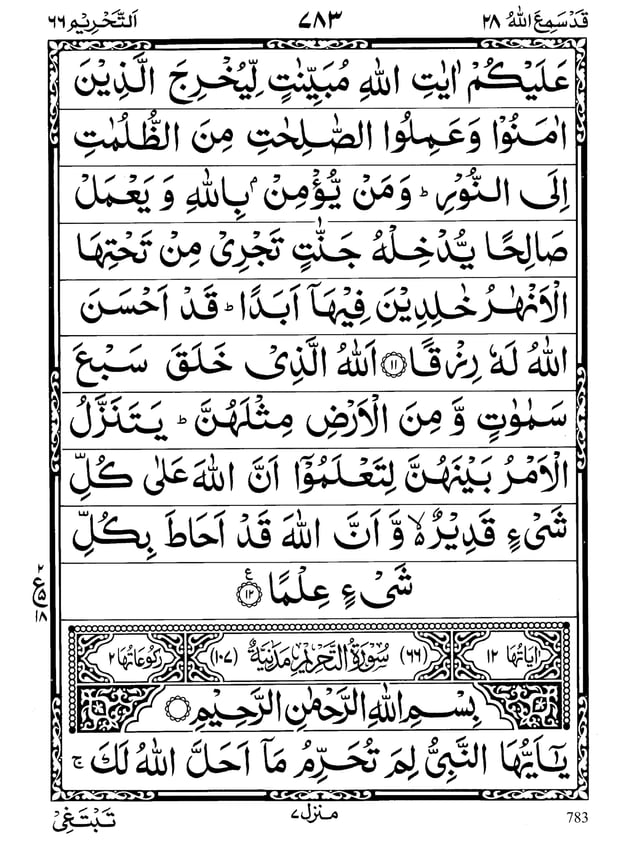 قَدْ سَمِعَ اللّٰهُ ٢٨ ٧٨٣ اَلتَّحْرِيْم ٦٦
عَلَيْكُمْ اٰيٰتِ اللّٰهِ مُبَيِّنٰتٍ لِّيُخْرِجَ الَّذِيْنَ
اٰمَنُوْا وَعَمِلُوا الصّٰلِحٰتِ مِنَ الظُّلُمٰتِ
اِلَى النُّوْرِ ؕ وَمَنْ يُّؤْمِنْۢ بِاللّٰهِ وَ يَعْمَلْ
صَالِحًا يُّدْخِلْهُ جَنّٰتٍ تَجْرِيْ مِنْ تَحْتِهَا
الْاَنْهٰرُ خٰلِدِيْنَ فِيْهَاۤ اَبَدًا ؕ قَدْ اَحْسَنَ
اللّٰهُ لَهٗ رِزْقًا ﴿١١﴾ اَللّٰهُ الَّذِيْ خَلَقَ سَبْعَ
سَمٰوٰتٍ وَّ مِنَ الْاَرْضِ مِثْلَهُنَّ ؕ يَتَنَزَّلُ
الْاَمْرُ بَيْنَهُنَّ لِتَعْلَمُوْۤا اَنَّ اللّٰهَ عَلٰى كُلِّ
شَيْءٍ قَدِيْرٌ ۙ وَّ اَنَّ اللّٰهَ قَدْ اَحَاطَ بِكُلِّ
شَيْءٍ عِلْمًا ﴿١٢﴾ ع
٢ ع ٥ ١٨
اٰيَاتُهَا ١٢ (٦٦) سُوْرَةُ التَّحْرِيْمِ مَدَنِيَّةٌ (١٠٧) رُكُوْعَاتُهَا ٢
بِسْمِ اللّٰهِ الرَّحْمٰنِ الرَّحِيْمِ
يٰۤاَيُّهَا النَّبِيُّ لِمَ تُحَرِّمُ مَاۤ اَحَلَّ اللّٰهُ لَكَ ۚ
783 منزل ٧ تَبْتَغِيْ